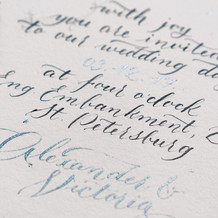 with joy
you are invited
to our wedding da
at four o'clock
Eng Embankment,
St Petersburg
Alexander &
Victoria